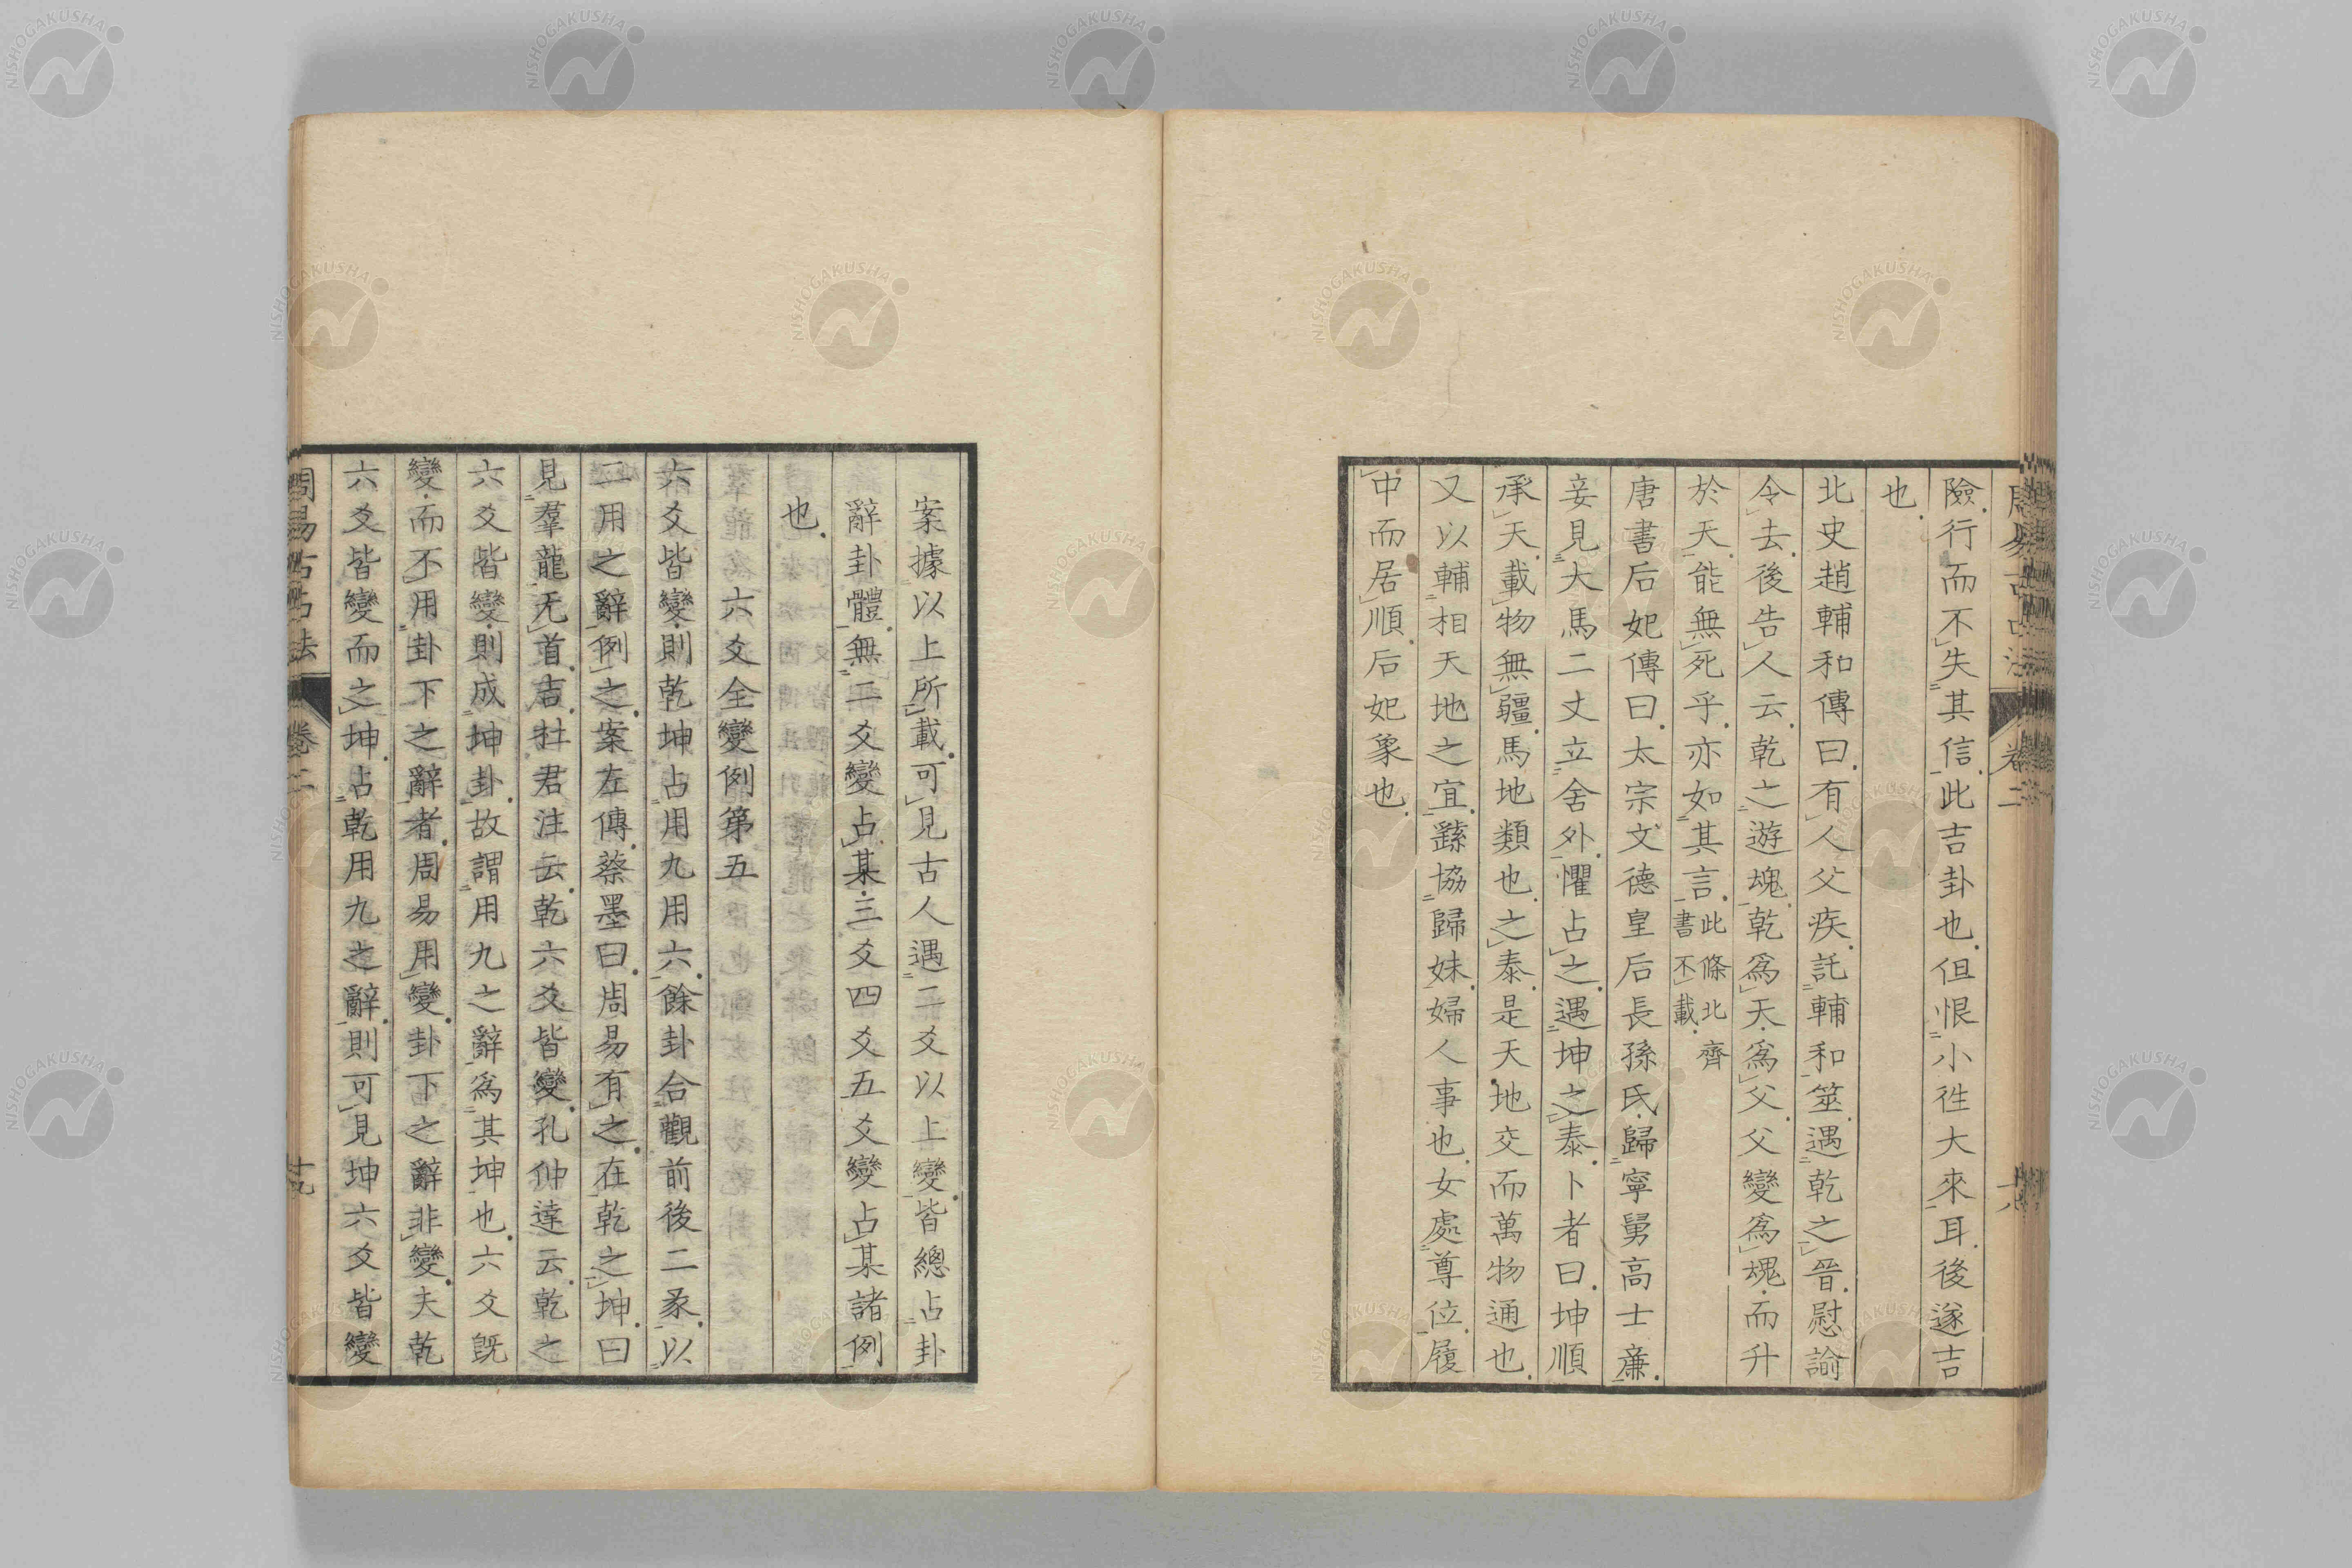 險行而不失其信此吉卦也但恨小徃大來耳後遂吉
也
北史趙輔和傳曰有人父疾託輔和筮遇乾之晉慰諭
令去後告人云乾之遊魂乾爲天爲父父變爲魂而升
於天能無死乎亦如其言此條北齊書不載
唐書后妃傳曰太宗文德皇后長孫氏歸寧舅高士廉
妾見大馬二丈立舍外懼占之遇坤之泰卜者曰坤順
承天載物無疆馬地類也之泰是天地交而萬物通也
又以輔相天地之宜繇協歸妹婦人事也女處尊位履
中而居順后妃象也
案據以上所載可見古人遇二爻以上變皆總占卦
辭卦體無二爻變占某三爻四爻五爻變占某諸例
也
六爻全變例第五
六爻皆變則乾坤占用九用六餘卦合觀前後二彖以
二用之辭例之案左傳蔡墨曰周易有之在乾之坤曰
見羣龍无首吉杜君注云乾六爻皆變孔仲達云乾之
六爻皆變則成坤卦故謂用九之辭爲其坤也六爻既
變而不用卦下之辭者周易用變卦下之辭非變夫乾
六爻皆變而之坤占乾用九之辭則可見坤六爻皆變
周易古占法 卷二 十九
NISHOGAKUSHA